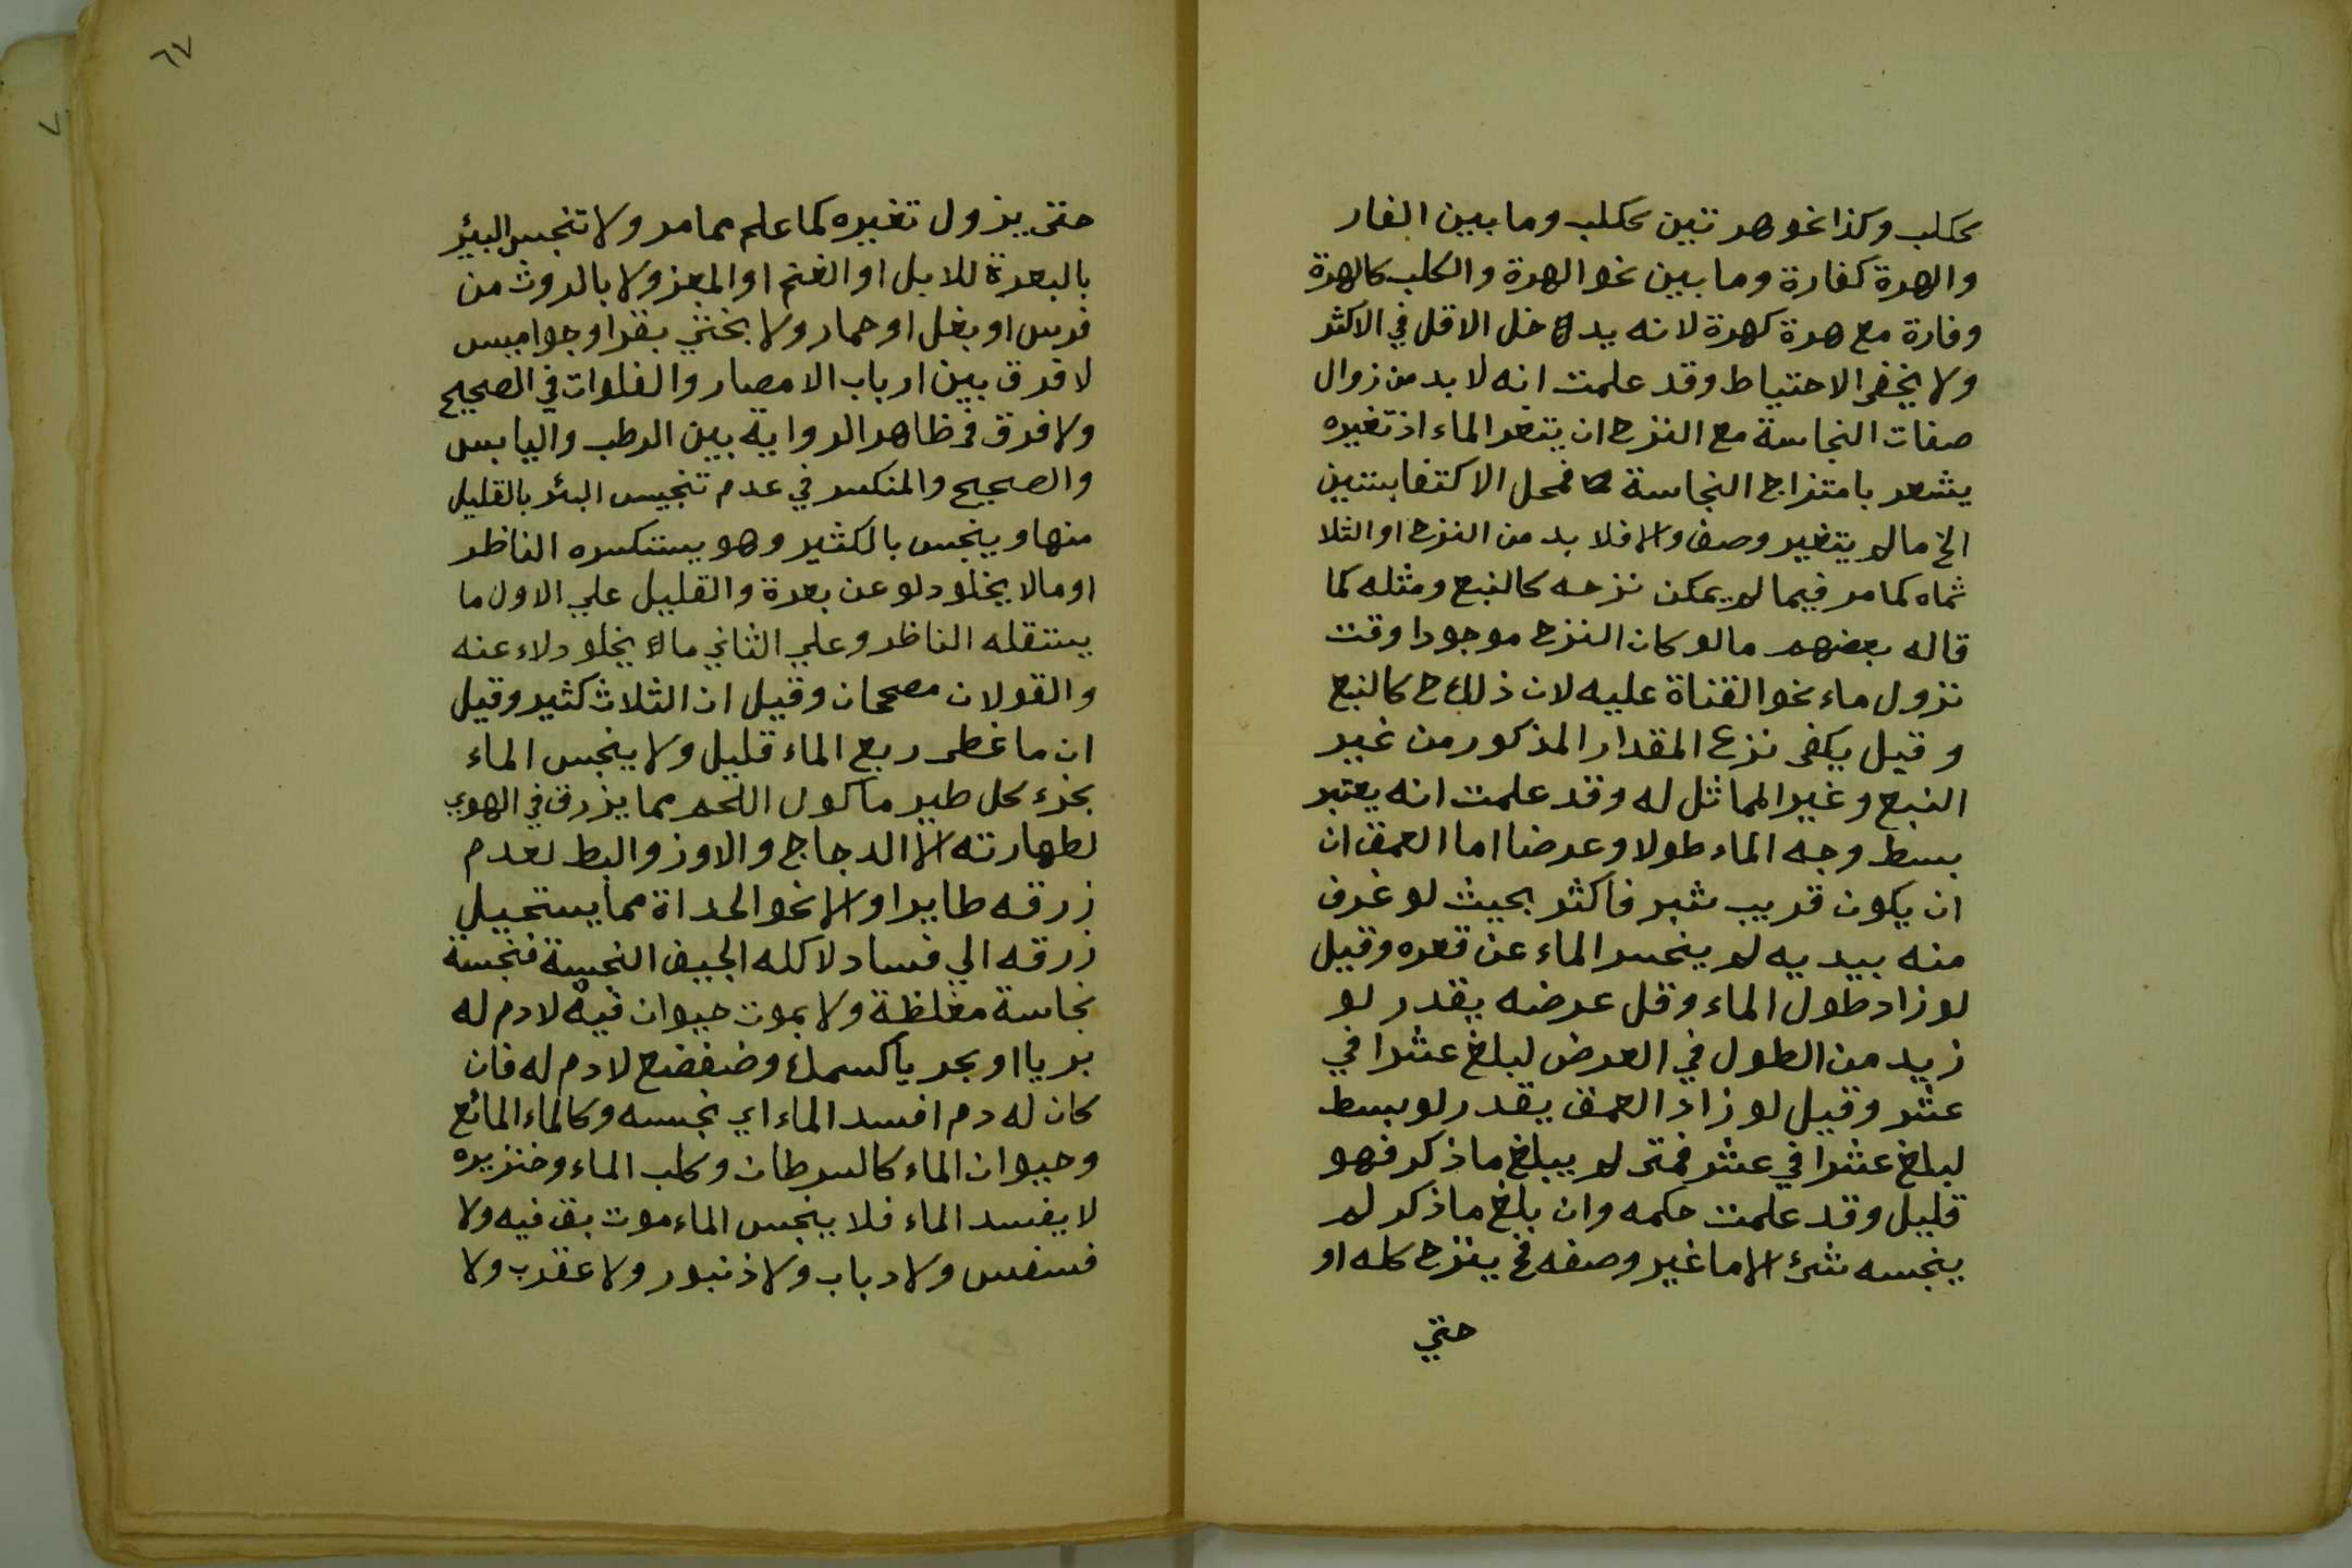 ككلب وكذا نحو هرتين ككلب وما بين الفار
والهرة كفارة وما بين نحو الهرة والكلب كالهرة
وفارة مع هرة كهرة لانه يدخل الاقل في الاكثر
ولا يخفى الاحتياط وقد علمت انه لا بد من زوال
صفات النجاسة مع النزح ان يتغر الماء اذ تغيره
يشعر بامتزاج النجاسة فمحل الاكتفا بستين
الخ ما لم يتغير وصف والا فلا بد من النزح او الثلا
ثماه كما مر فيما لم يمكن نزحه كالنبع ومثله كما
قاله بعضهم ما لو كان النزح موجودا وقت
نزول ماء نحو القناة عليه لان ذلك ح كالنبع
وقيل يكفى نزع المقدار المذكور من غير
النبع وغير المماثل له وقد علمت انه يعتبر
بسط وجه الماء طولا وعرضا اما العمق ان
ان يكون قريب شبر فاكثر بحيث لو غرف
منه بيديه لم ينحسر الماء عن قعره وقيل
لو زاد طول الماء وقل عرضه يقدر لو
زيد من الطول في العرض لبلغ عشرا في
عشر وقيل لو زاد العمق يقدر لو بسط
لبلغ عشرا في عشر فمتى لم يبلغ ما ذكر فهو
قليل وقد علمت حكمه وان بلغ ما ذكر لم
ينجسه شئ الا ما غير وصفه فح ينزح كله او
حتي
٦٧
حتى يزول تغيره كما علم مما مر ولا تنجس البئر
بالبعرة للابل او الغنم او المعز ولا بالروث من
فرس او بغل او حمار ولا بخثي بقر او جواميس
لا فرق بين ارباب الامصار والفلوات في الصحيح
ولا فرق في ظاهر الرواية بين الرطب واليابس
والصحيح والمنكسر في عدم تنجيس البئر بالقليل
منها وينجس بالكثير وهو يستكسره الناظر
او مالا يخلو دلو عن بعرة والقليل علي الاول ما
يستقله الناظر وعلي الثاني مالا يخلو دلاء عنه
والقولان مصححان وقيل ان الثلاث كثير وقيل
ان ما غطى ربع الماء قليل ولا ينجس الماء
بخرء كل طير ماكول اللحم مما يزرق في الهوي
لطهارته الا الدجاج والاوز والبط لعدم
زرقه طايرا والا نحو الحداة مما يستحيل
زرقه الي فساد لاكله الجيف النجسة فنجسة
نجاسة مغلظة ولا بموت حيوان فيه لا دم له
بريا او بحريا كسمك وضفضع لا دم له فان
كان له دم افسد الماء اي نجسه وكالماء المائع
وحيوان الماء كالسرطان وكلب الماء وخنزيره
لا يفسد الماء فلا ينجس الماء موت بق فيه ولا
فسفس ولا دباب ولا ذنبور ولا عقرب ولا
٧